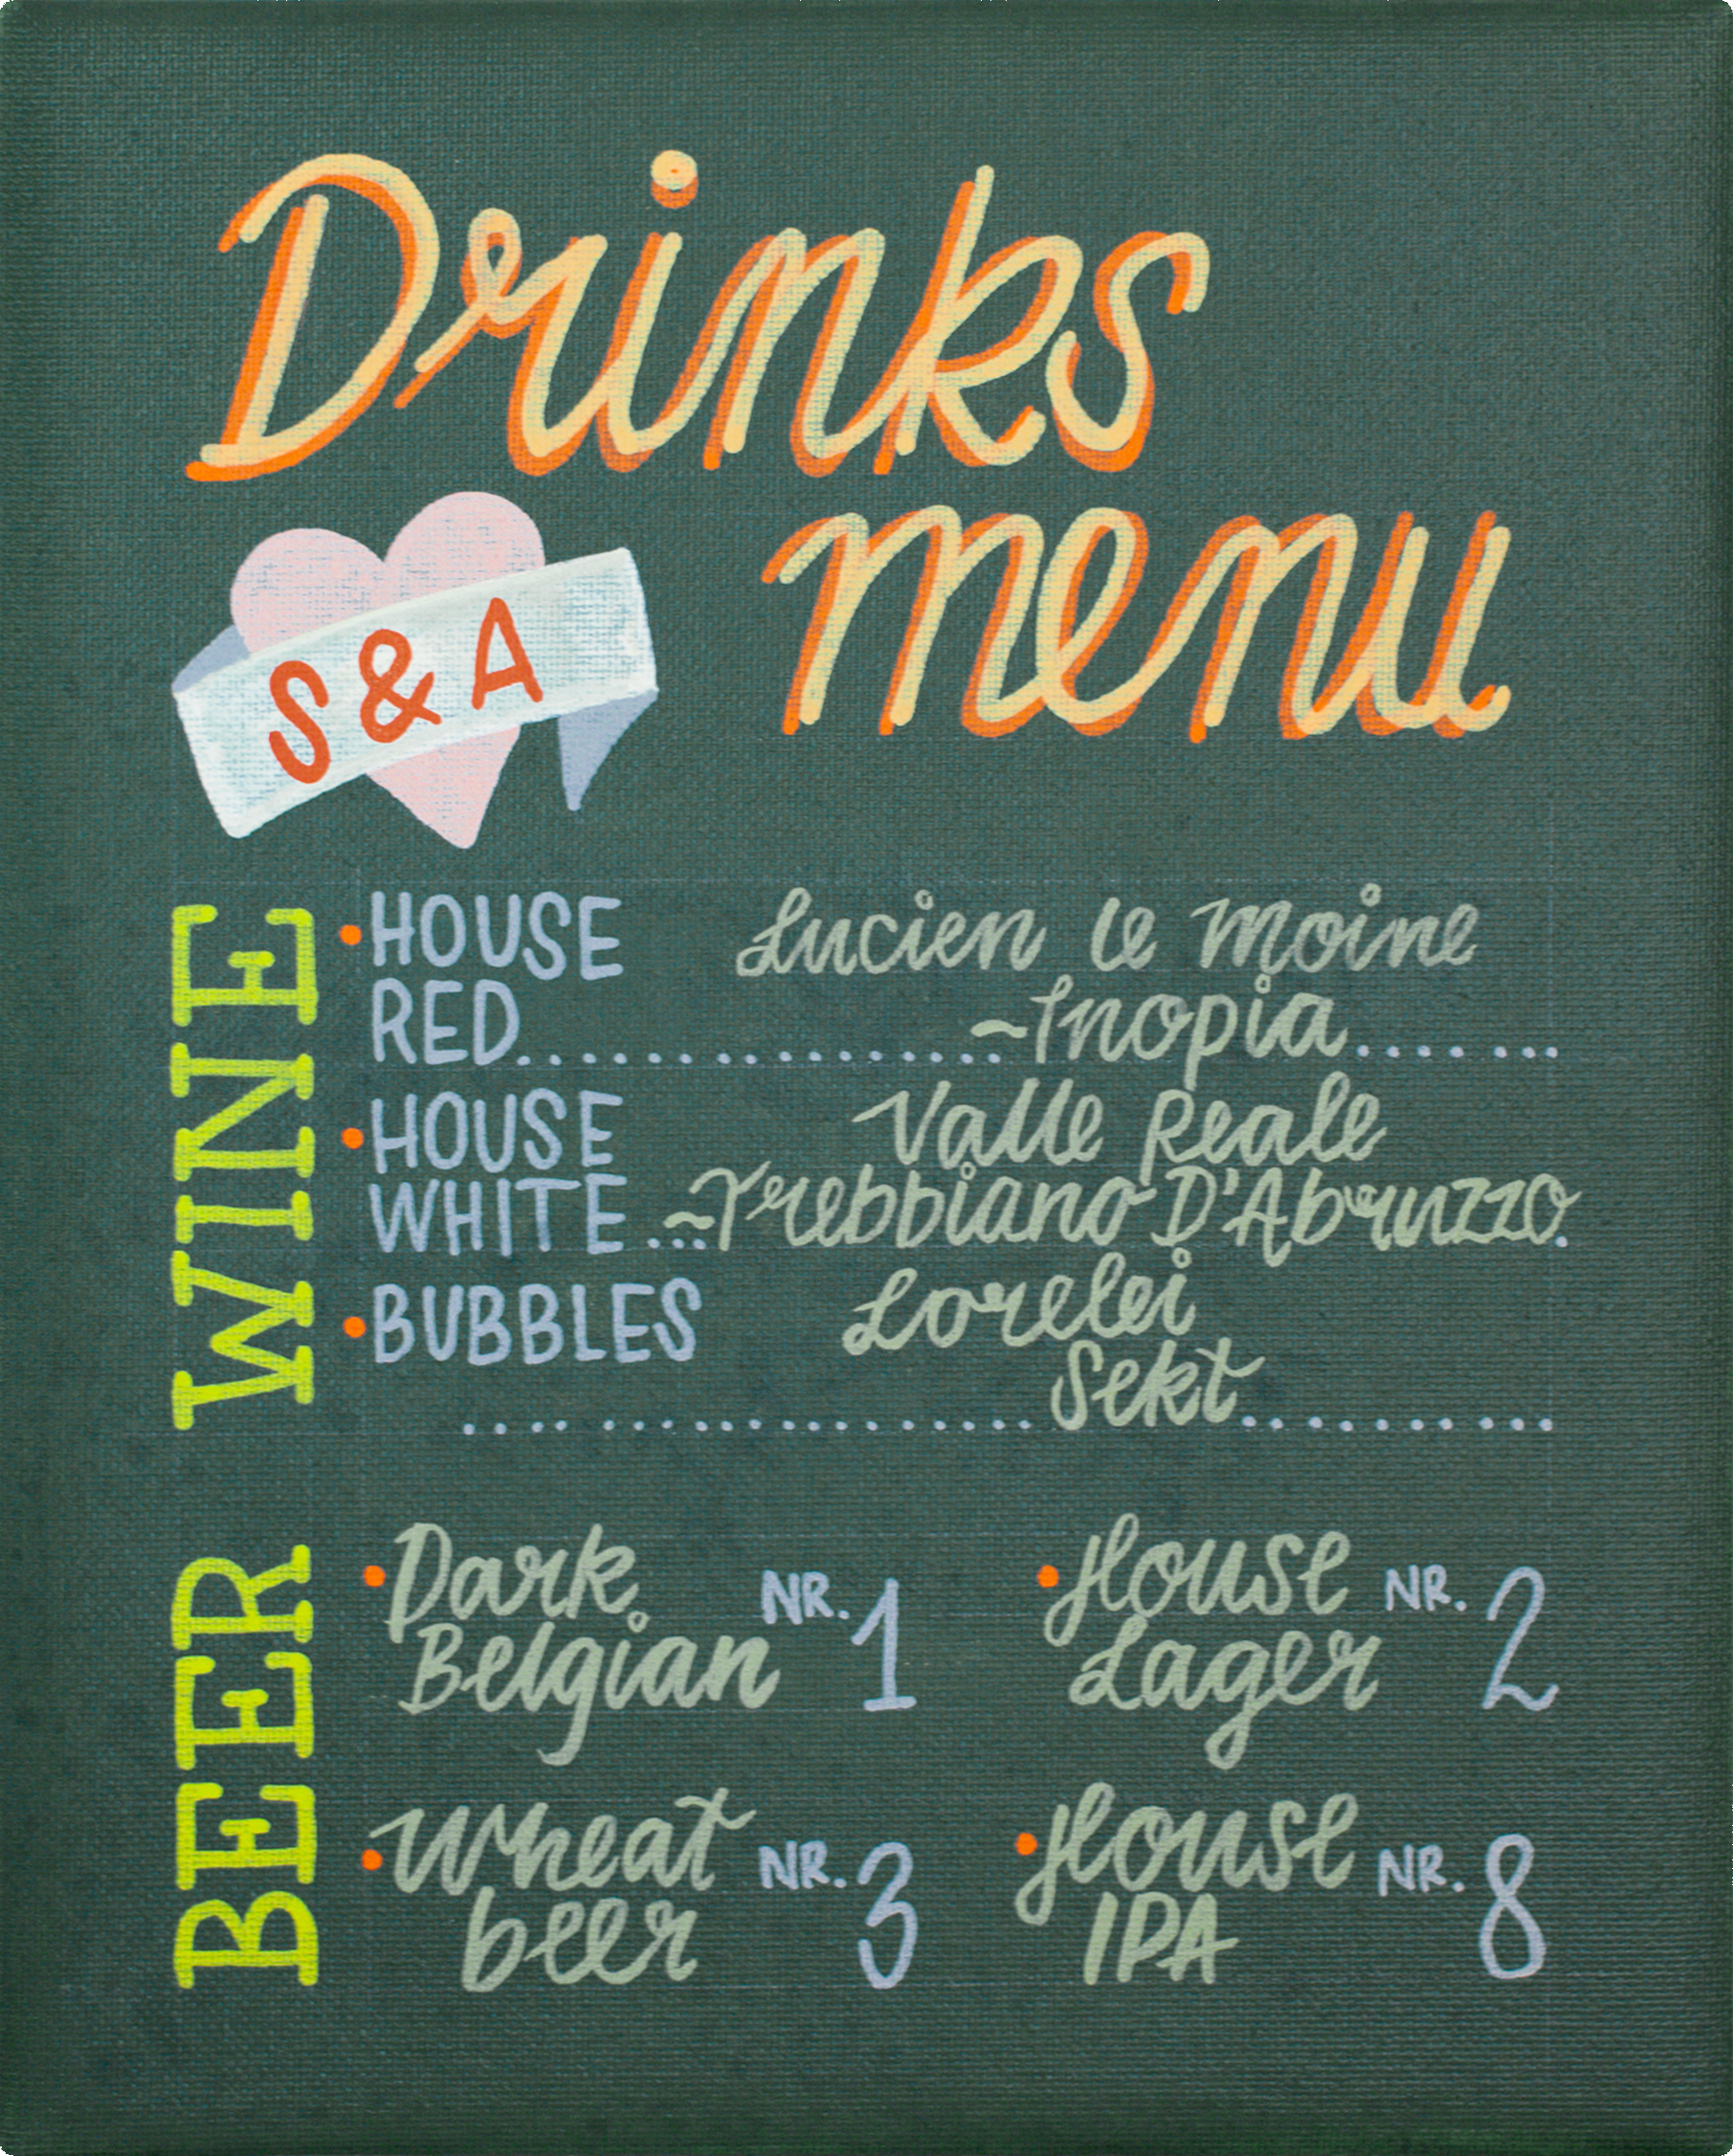 Drinks
menu
S & A
WINE
• HOUSE Lucien le Moine
RED.................... ~Inopia.........
• HOUSE Valle Reale
WHITE ...~Trebbiano D'Abruzzo.
• BUBBLES Lorelei
.......................Sekt............
BEER
• Dark NR. 1
Belgian
• House NR. 2
Lager
• Wheat NR. 3
beer
• House NR. 8
IPA